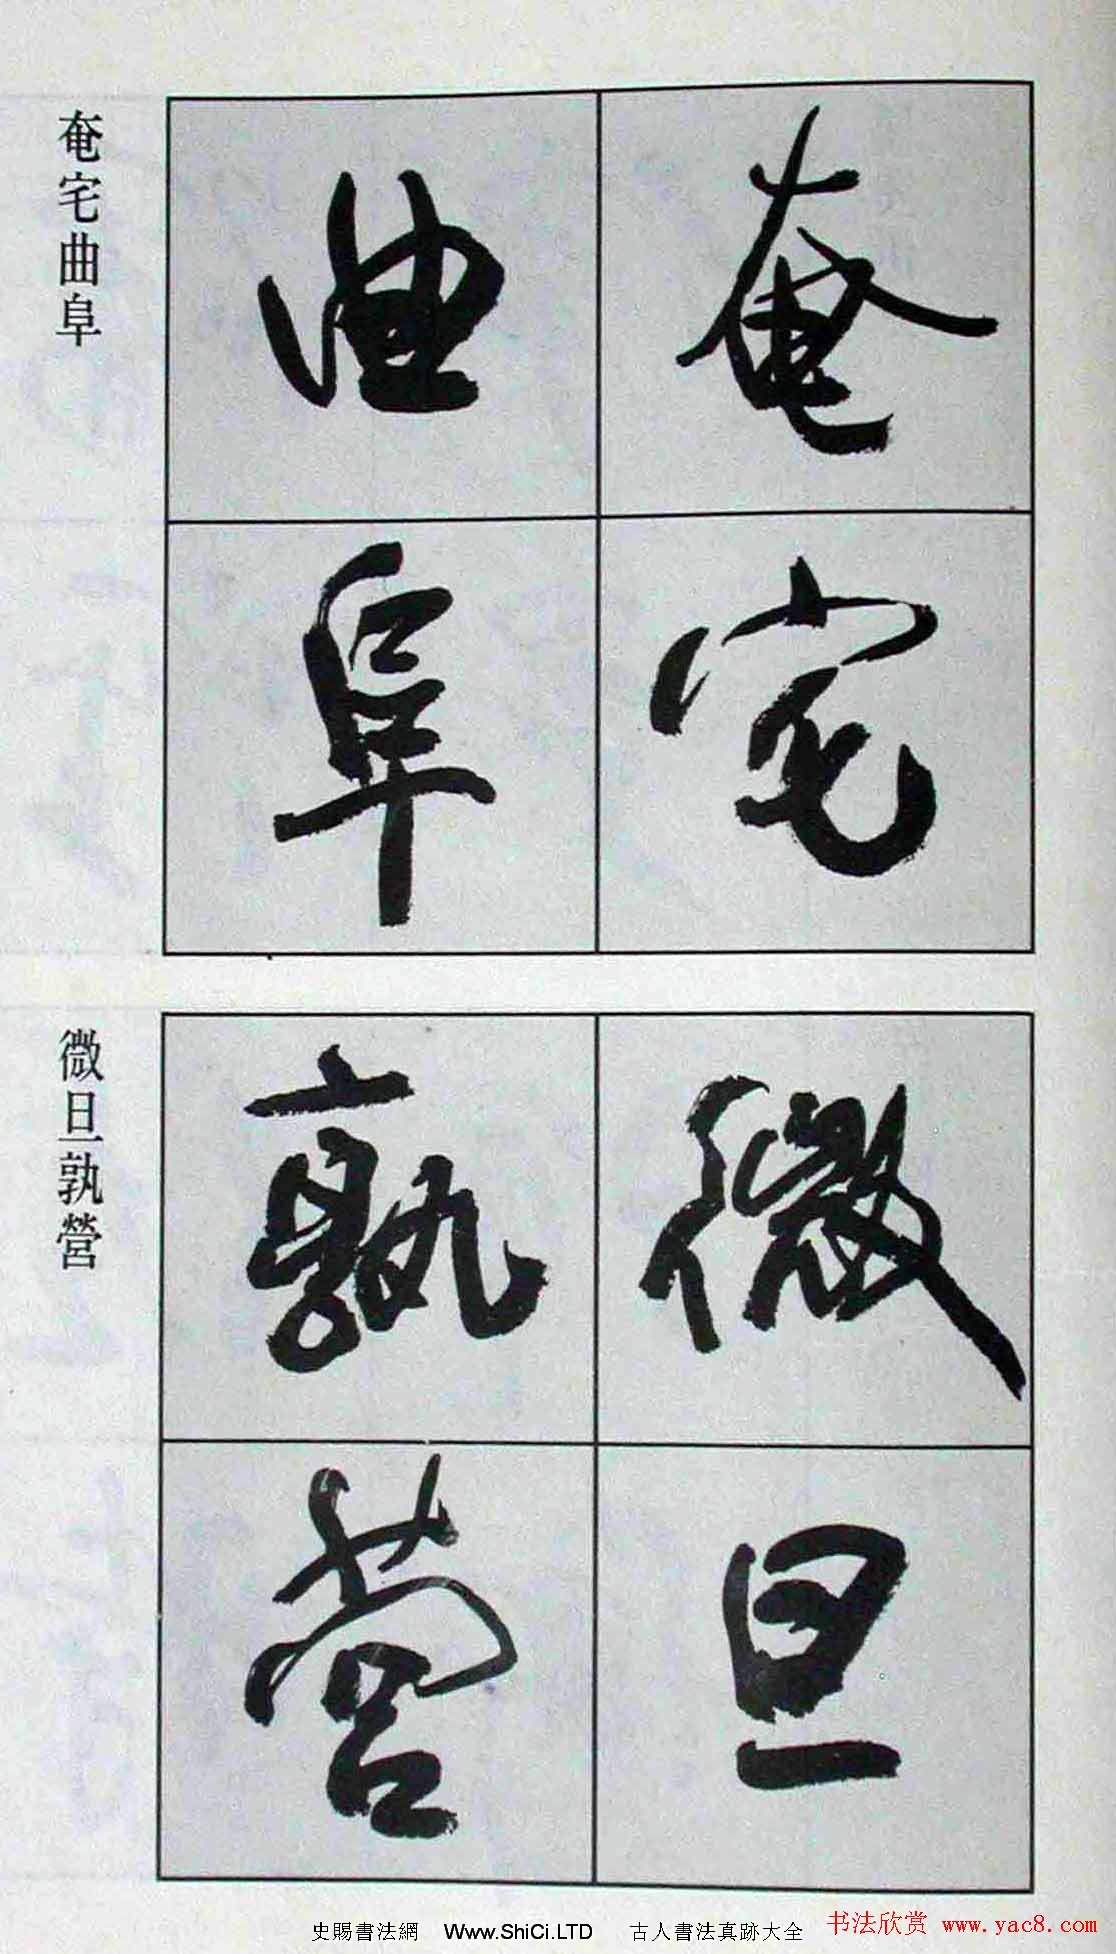 奄宅
曲阜
奄宅曲阜
微旦
孰營
微旦孰營
史賜書法網 Www.ShiCi.LTD 古人書法真跡大全
书法欣赏 www.yac8.com